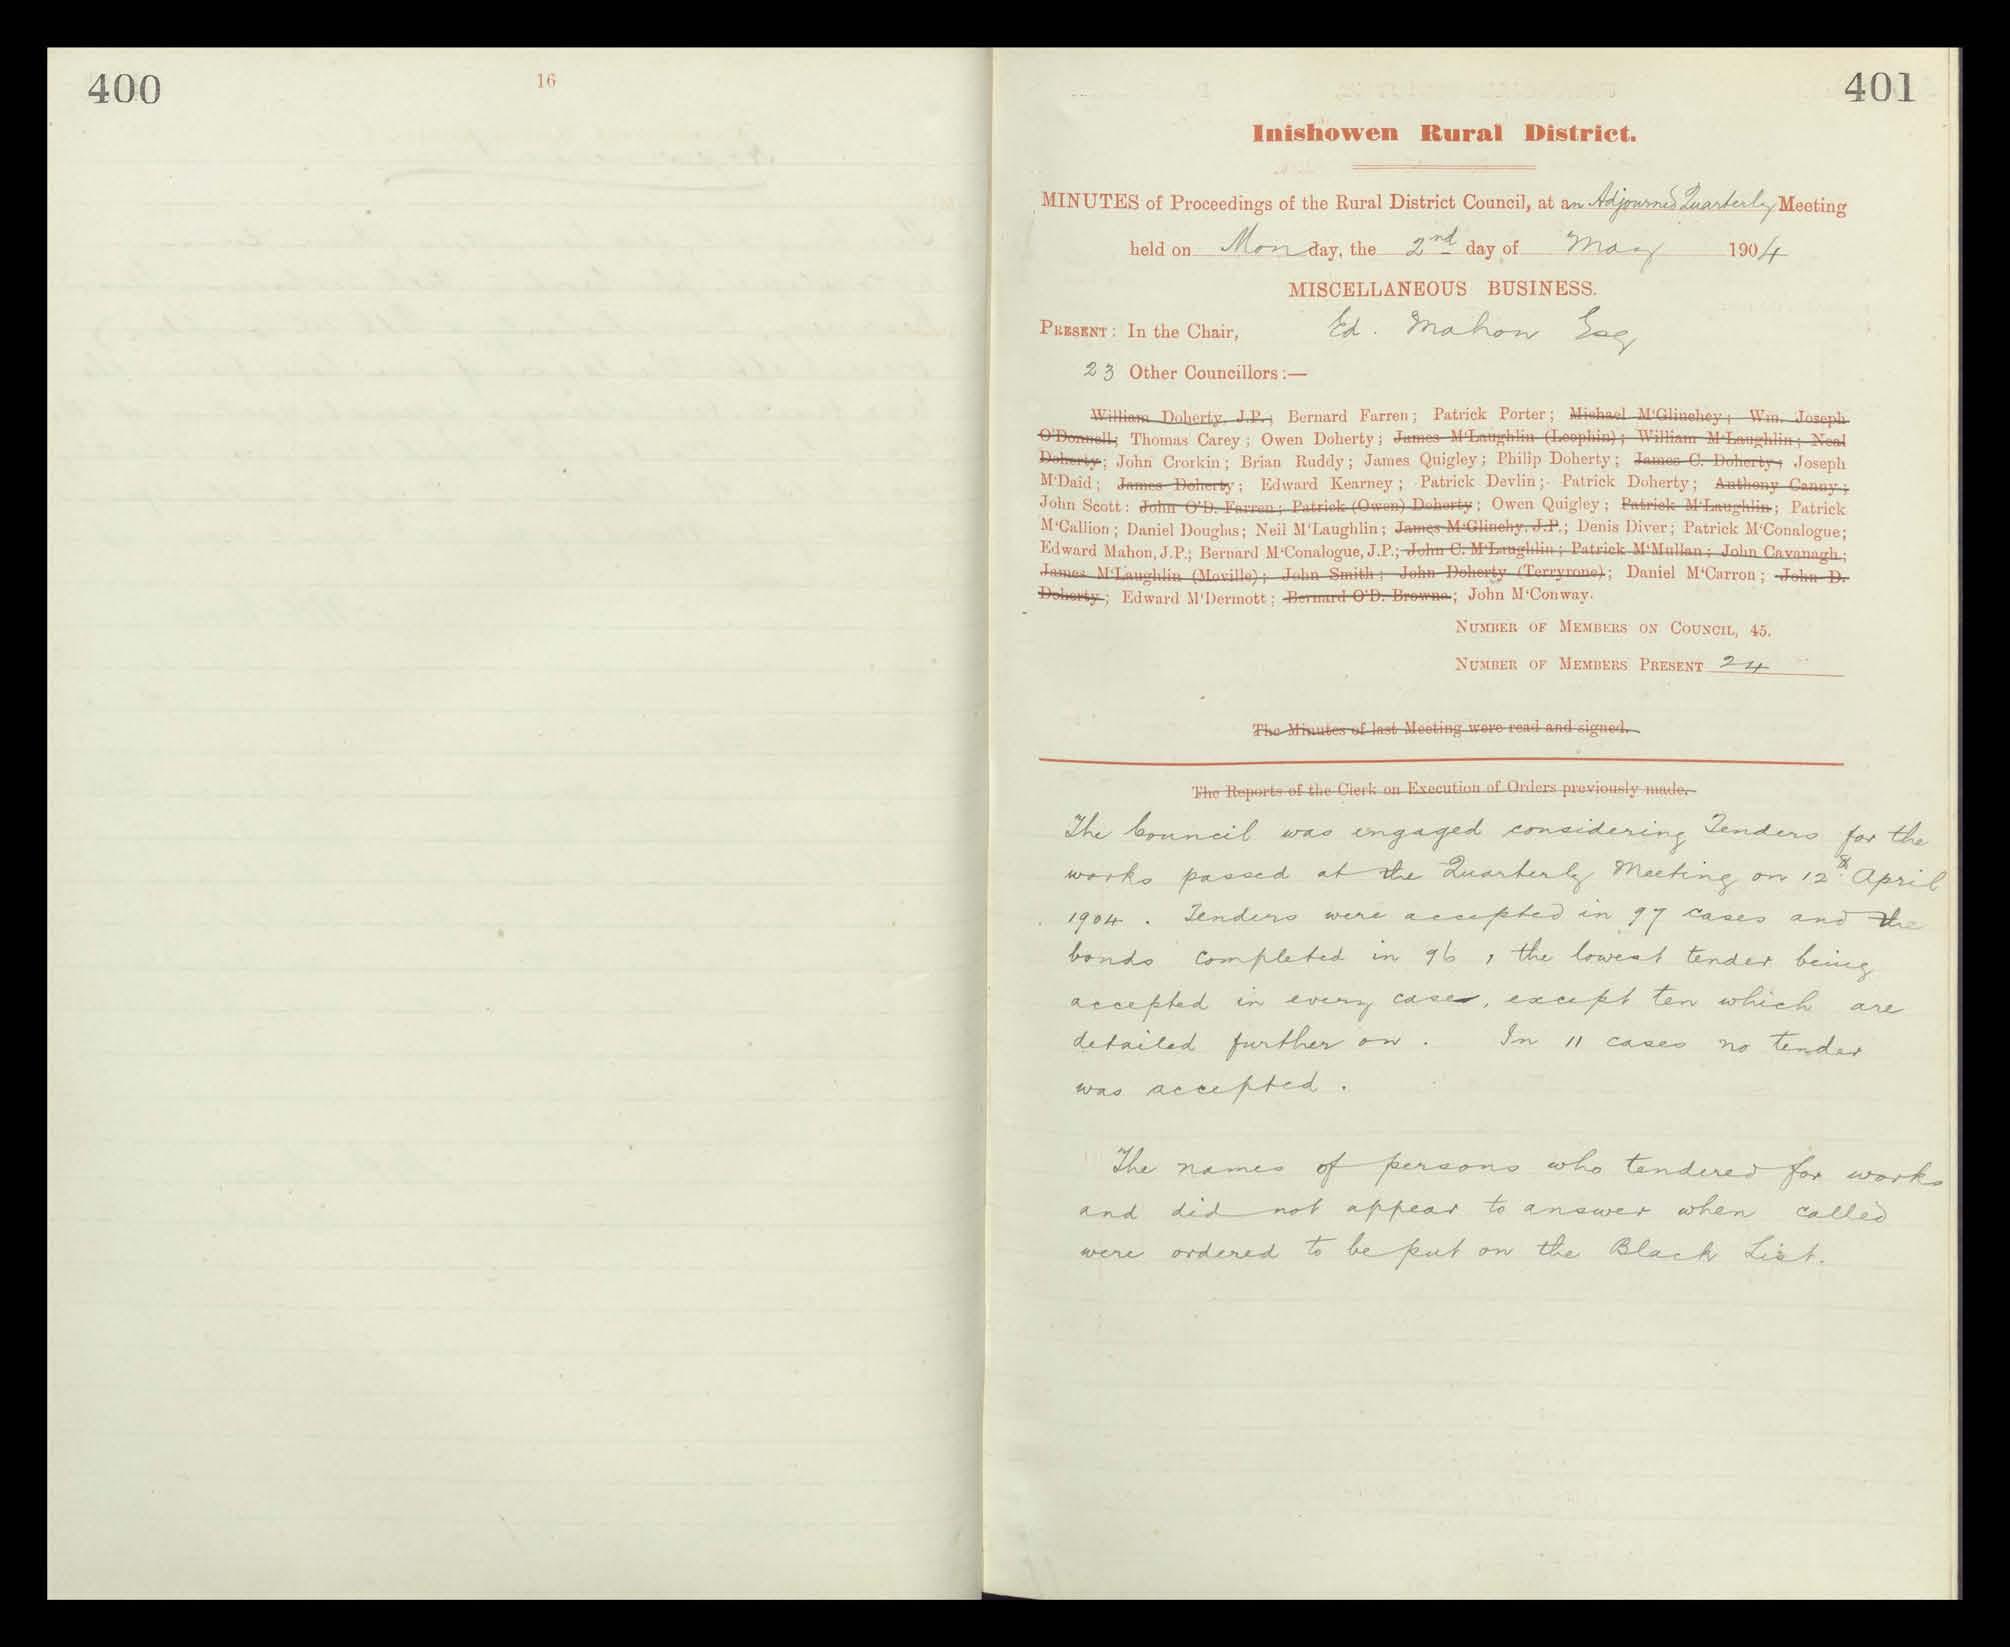 400
16
401
Inishowen Rural District.
MINUTES of Proceedings of the Rural District Council, at an Adjourned Quarterly Meeting
held on Monday, the 2nd day of May 1904
MISCELLANEOUS BUSINESS.
PRESENT: In the Chair, Ed. Mahon Esq
23 Other Councillors:—
William Doherty, J.P.; Bernard Farren; Patrick Porter; Michael M'Glinchey; Wm. Joseph
O'Donnell; Thomas Carey; Owen Doherty; James M'Laughlin (Leophin); William M'Laughlin; Neal
Doherty; John Crorkin; Brian Ruddy; James Quigley; Philip Doherty; James C. Doherty; Joseph
M'Daid; James Doherty; Edward Kearney; Patrick Devlin; Patrick Doherty; Anthony Canny;
John Scott: John O'D. Farren; Patrick (Owen) Doherty; Owen Quigley; Patrick M'Laughlin; Patrick
M'Callion; Daniel Douglas; Neil M'Laughlin; James M'Glinchy, J.P.; Denis Diver; Patrick M'Conalogue;
Edward Mahon, J.P.; Bernard M'Conalogue, J.P.; John C. M'Laughlin; Patrick M'Mullan; John Cavanagh;
James M'Laughlin (Moville); John Smith; John Doherty (Terryrone); Daniel M'Carron; John D.
Doherty; Edward M'Dermott; Bernard O'D. Browne; John M'Conway.
NUMBER OF MEMBERS ON COUNCIL, 45.
NUMBER OF MEMBERS PRESENT 24
The Minutes of last Meeting were read and signed.
The Reports of the Clerk on Execution of Orders previously made.
The Council was engaged considering Tenders for the
works passed at the Quarterly Meeting on 12th April
1904. Tenders were accepted in 97 cases and the
bonds completed in 96, the lowest tender being
accepted in every case, except ten which are
detailed further on. In 11 cases no tender
was accepted.
The names of persons who tendered for works
and did not appear to answer when called
were ordered to be put on the Black List.